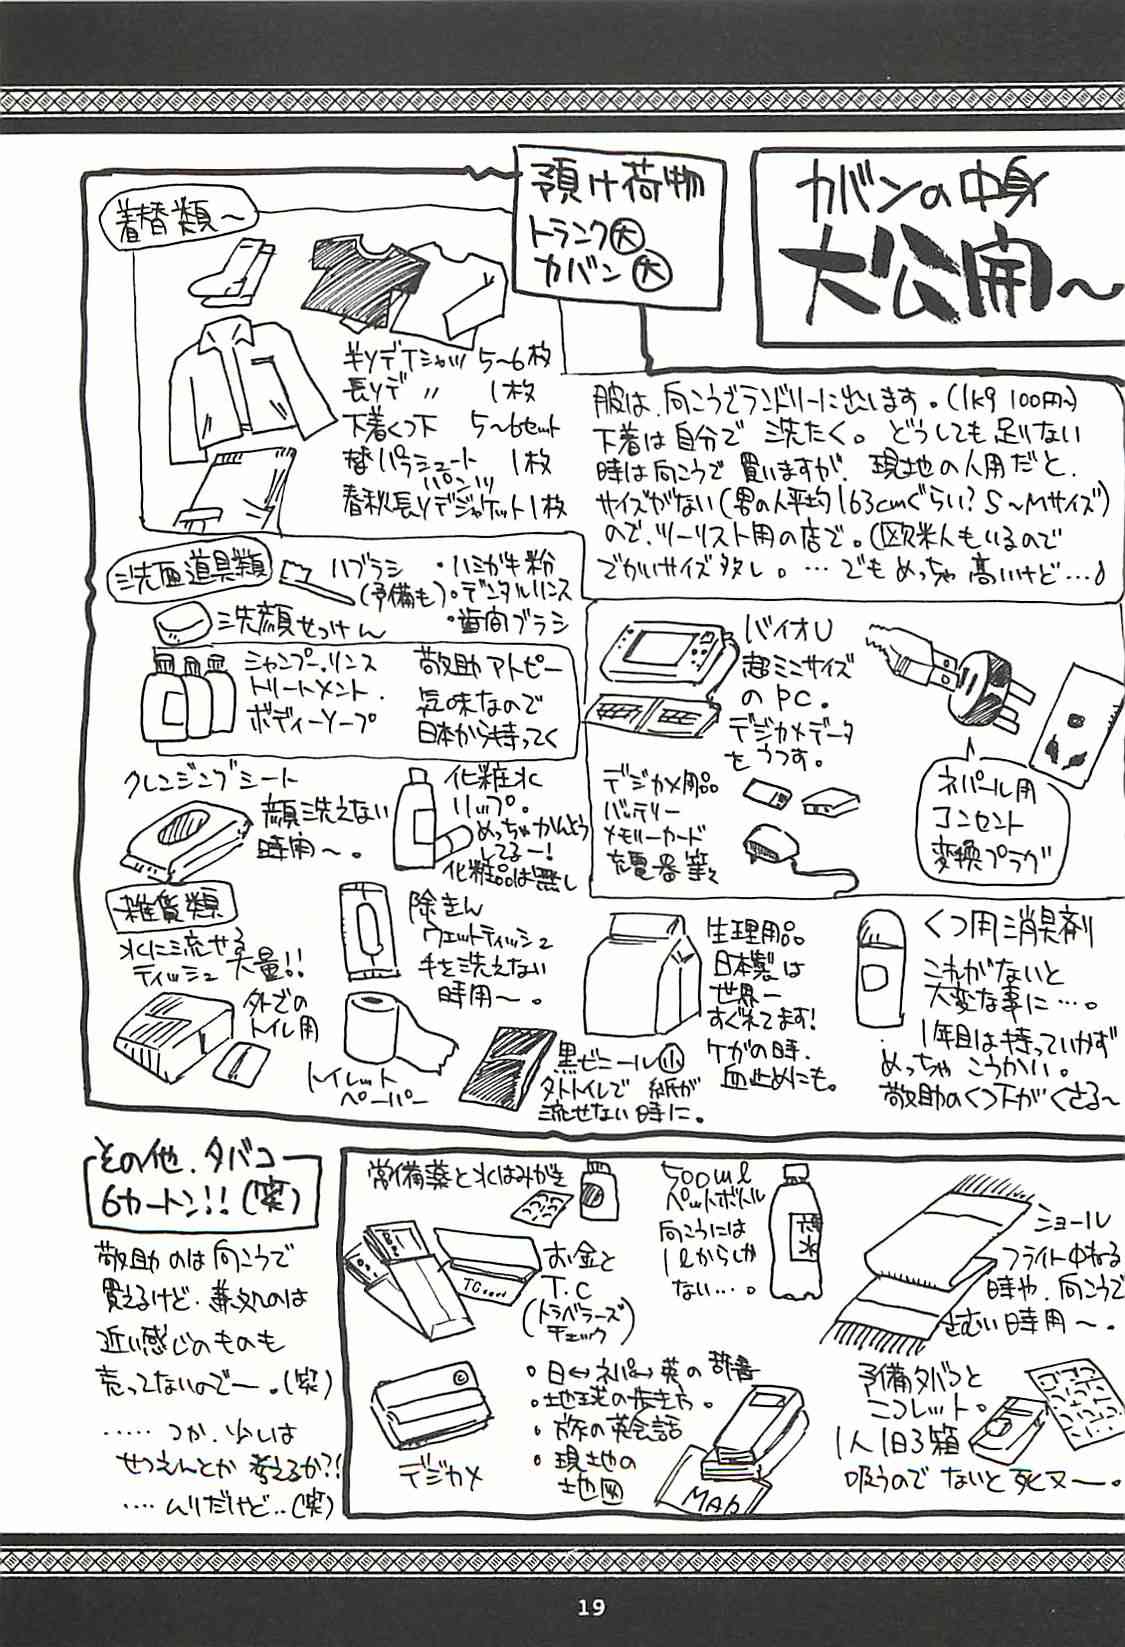 カバンの中身
大公開〜
預け荷物
トランク大
カバン大
着替類〜
半ソデTシャツ 5〜6枚
長ソデ 〃 1枚
下着くつ下 5〜6セット
替パラシュート 1枚
パンツ
春秋長ソデジャケット1枚
服は、向こうでランドリーに出します。(1kg 100円〜)
下着は自分で洗たく。どうしても足りない
時は向こうで買いますが、現地の人用だと、
サイズがない(男の人平均163cmぐらい?S〜Mサイズ)
ので、ツーリスト用の店で。(欧米人もいるので
でかいサイズ多し。…でもめっちゃ高いけど…♪
洗面道具類
ハブラシ ・ハミガキ粉
(予備も)・デンタルリンス
・歯間ブラシ
洗顔せっけん
シャンプー、リンス
トリートメント、
ボディーソープ
敬助アトピー
気味なので
日本から持ってく
クレンジングシート
顔洗えない
時用〜。
化粧水
リップ。
めっちゃかんとう
してるー!
化粧品は無し
バイオU
超ミニサイズ
のPC。
デジカメデータ
をうつす。
デジカメ用品
バッテリー
メモリーカード
充電器等々
ネパール用
コンセント
変換プラグ
雑貨類
水に流せる
ティッシュ大量!!
外での
トイレ用
除きん
ウェットティッシュ
手を洗えない
時用〜。
トイレット
ペーパー
黒ビニール小
外トイレで紙が
流せない時に。
生理用品
日本製は
世界一
すぐれてます!
ケガの時、
血止めにも。
くつ用消臭剤
これがないと
大変な事に…。
1年目は持っていかず
めっちゃこうかい。
敬助のくつ下がくさる〜
その他、タバコ
6カートン!!(笑)
敬助のは向こうで
買えるけど、兼処のは
近い感じのものも
売ってないので〜。(笑)
……つか、少しは
せつえんとか考えるか?!
…ムリだけど..(笑)
常備薬と水はみがき
お金と
T.C
(トラベラーズ
チェック)
T.C
500ml
ペットボトル
向こうには
1lからしか
ない…。
水
ショール
フライト中ねる
時や、向こうで
さむい時用〜。
デジカメ
・日↔ネパ↔英の辞書
・地球の歩き方。
・旅の英会話
・現地の
地図
MAP
予備タバコと
ニコレット。
1人1日3箱
吸うのでないと死ヌ〜。
19